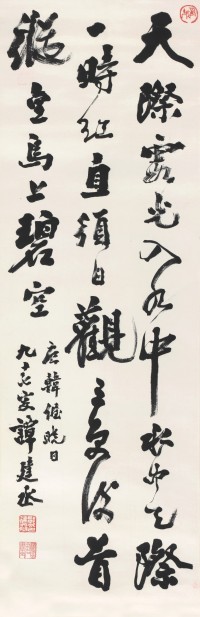 天際霞光入水中水中天際
一時紅直須日觀三更後首
金烏上碧空
唐韓偓曉日
九十七叟譚建丞